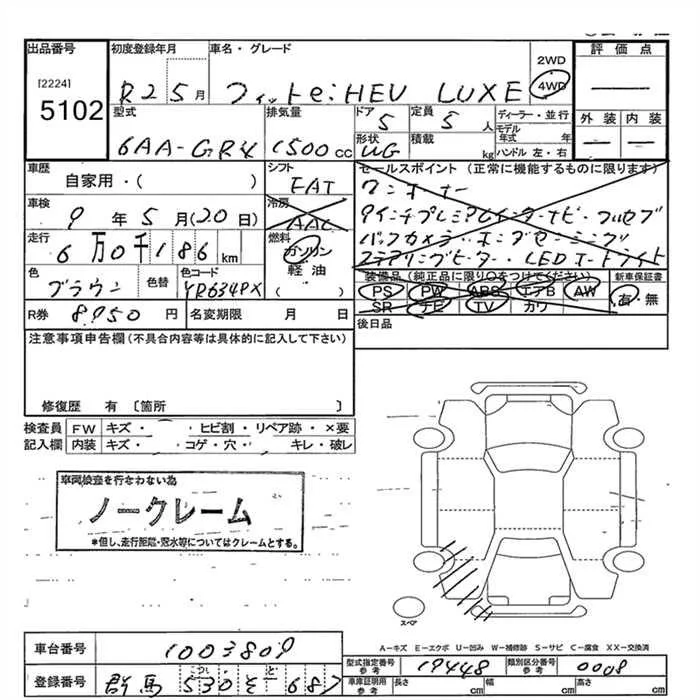 出品番号 初度登録年月 車名・グレード 2WD 評価点
[2224]
5102 R2 5月 フィットe:HEV LUXE 4WD
型式 排気量 ドア 定員 ディーラー・並行 外装 内装
6AA-GR4 1500CC 5 5人 モデル年式 年
形状 積載 kg ハンドル 左・右
UG
車歴 シフト セールスポイント(正常に機能するものに限ります)
自家用・( ) FAT ワンオーナー
車検 冷房
9年5月(20日) AAC
走行 燃料
6万0千186km ガソリン バックカメラ・
色 色替 色コード 軽油 LED
ブラウン YR634PX ( ) 装備品(純正品に限り○をつけてください) 新車保証書
PS PW ABS エアB AW 有・無
R券 8,950円 名変期限 月 日 SR ナビ TV カワ
注意事項申告欄(不具合内容等は具体的に記入して下さい) 後日品
修復歴 有〔箇所 〕
検査員 FW キズ・ ヒビ割・リペア跡・×要
記入欄 内装 キズ・ コゲ・穴・ キレ・破レ
車両検査を行なわない為
ノークレーム
*但し、走行距離・冠水等についてはクレームとする。
スペア
A-キズ E-エクボ U-凹み W-補修跡 S-サビ C-腐食 XX-交換済
車台番号 1003809 型式指定番号 参考 19448 類別区分番号 参考 0008
登録番号 群馬 530 そ 687 車庫証明用 参考 長さ cm 幅 cm 高さ cm